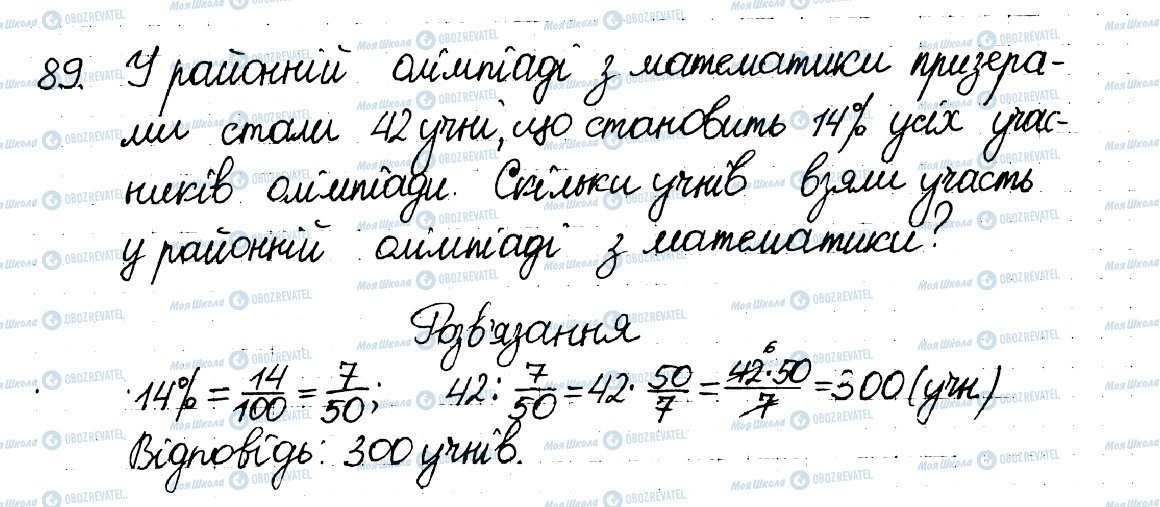 89. У районній олімпіаді з математики призера-
ми стали 42 учні, що становить 14% усіх учас-
ників олімпіади. Скільки учнів взяли участь
у районній олімпіаді з математики?
Розв'язання
14% = 14/100 = 7/50; 42 : 7/50 = 42 · 50/7 = 42·50/7 = 300 (учн)
Відповідь: 300 учнів.